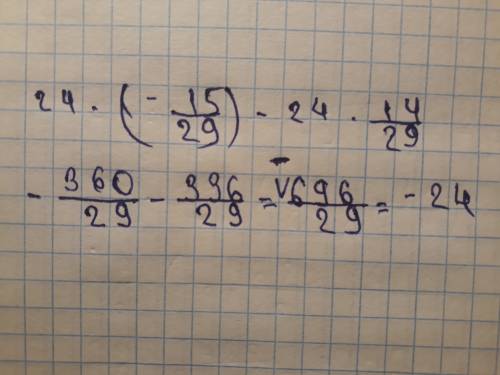 24 · (- 15/29) - 24 · 14/29
- 360/29 - 336/29 = - √696/29 = - 24